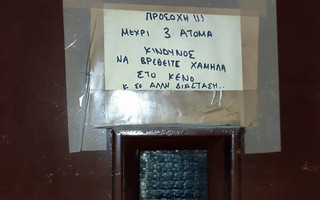 ΠΡΟΣΟΧΗ !!!
ΜΕΧΡΙ 3 ΑΤΟΜΑ
ΚΙΝΔΥΝΟΣ
ΝΑ ΒΡΕΘΕΙΤΕ ΧΑΜΗΛΑ
ΣΤΟ ΚΕΝΟ
Κ ΣΕ ΑΛΛΗ ΔΙΑΣΤΑΣΗ..